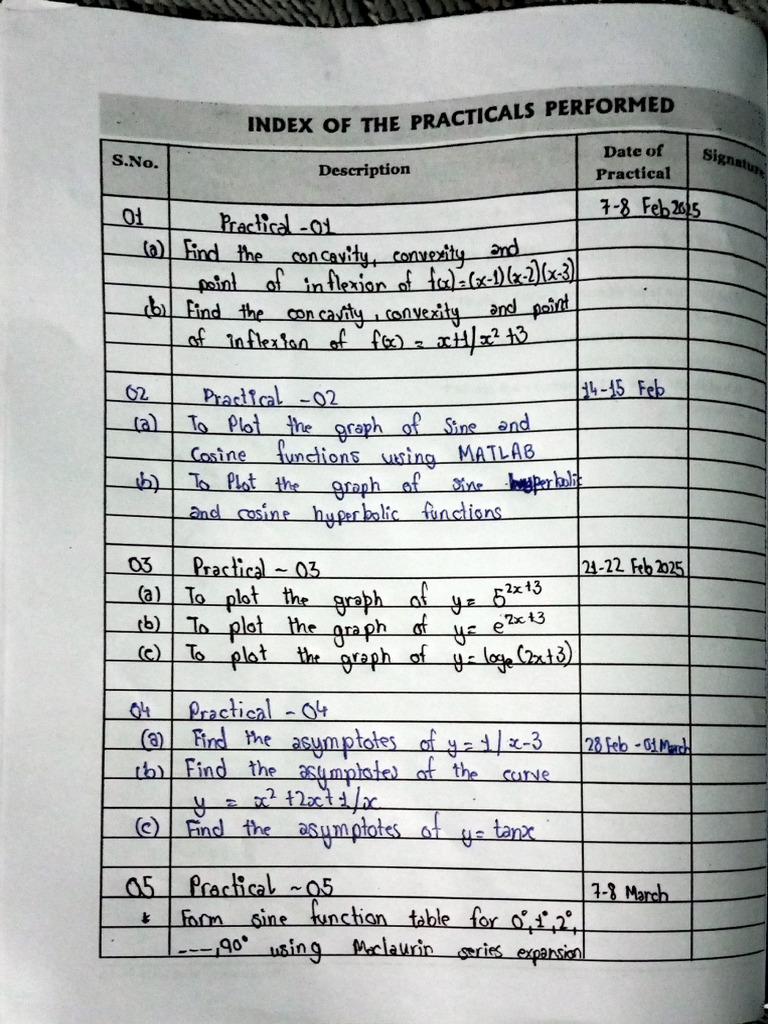 INDEX OF THE PRACTICALS PERFORMED
S.No. Description Date of Practical Signature
01 Practical -01 7-8 Feb 2025
(a) Find the concavity, convexity and
point of inflexion of f(x)=(x-1)(x-2)(x-3)
(b) Find the concavity, convexity and point
of inflexion of f(x) = x+1/x²+3
02 Practical -02 14-15 Feb
(a) To Plot the graph of Sine and
Cosine functions using MATLAB
(b) To Plot the graph of sine hyperbolic
and cosine hyperbolic functions
03 Practical - 03 21-22 Feb 2025
(a) To plot the graph of y= 5²ˣ⁺³
(b) To plot the graph of y= e²ˣ⁺³
(c) To plot the graph of y=logₑ(2x+3)
04 Practical - 04
(a) Find the asymptotes of y=1/x-3 28 Feb - 01 March
(b) Find the asymptotes of the curve
y = x²+2x+1/x
(c) Find the asymptotes of y= tanx
05 Practical - 05 7-8 March
* Form sine function table for 0°,1°,2°,
---,90° using Maclaurin series expansion